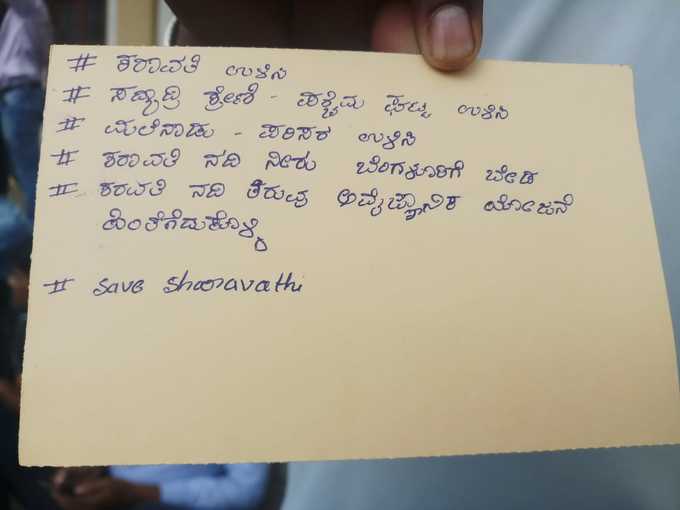 # ಶರಾವತಿ ಉಳಿಸಿ
# ಸಹ್ಯಾದ್ರಿ ಶ್ರೇಣಿ - ಪಶ್ಚಿಮ ಘಟ್ಟ ಉಳಿಸಿ
# ಮಲೆನಾಡು - ಪರಿಸರ ಉಳಿಸಿ
# ಶರಾವತಿ ನದಿ ನೀರು ಬೆಂಗಳೂರಿಗೆ ಬೇಡ
# ಶರವತಿ ನದಿ ತಿರುವು ಅವೈಜ್ಞಾನಿಕ ಯೋಜನೆ
ಹಿಂತೆಗೆದುಕೊಳ್ಳಿ
# save sharavathi